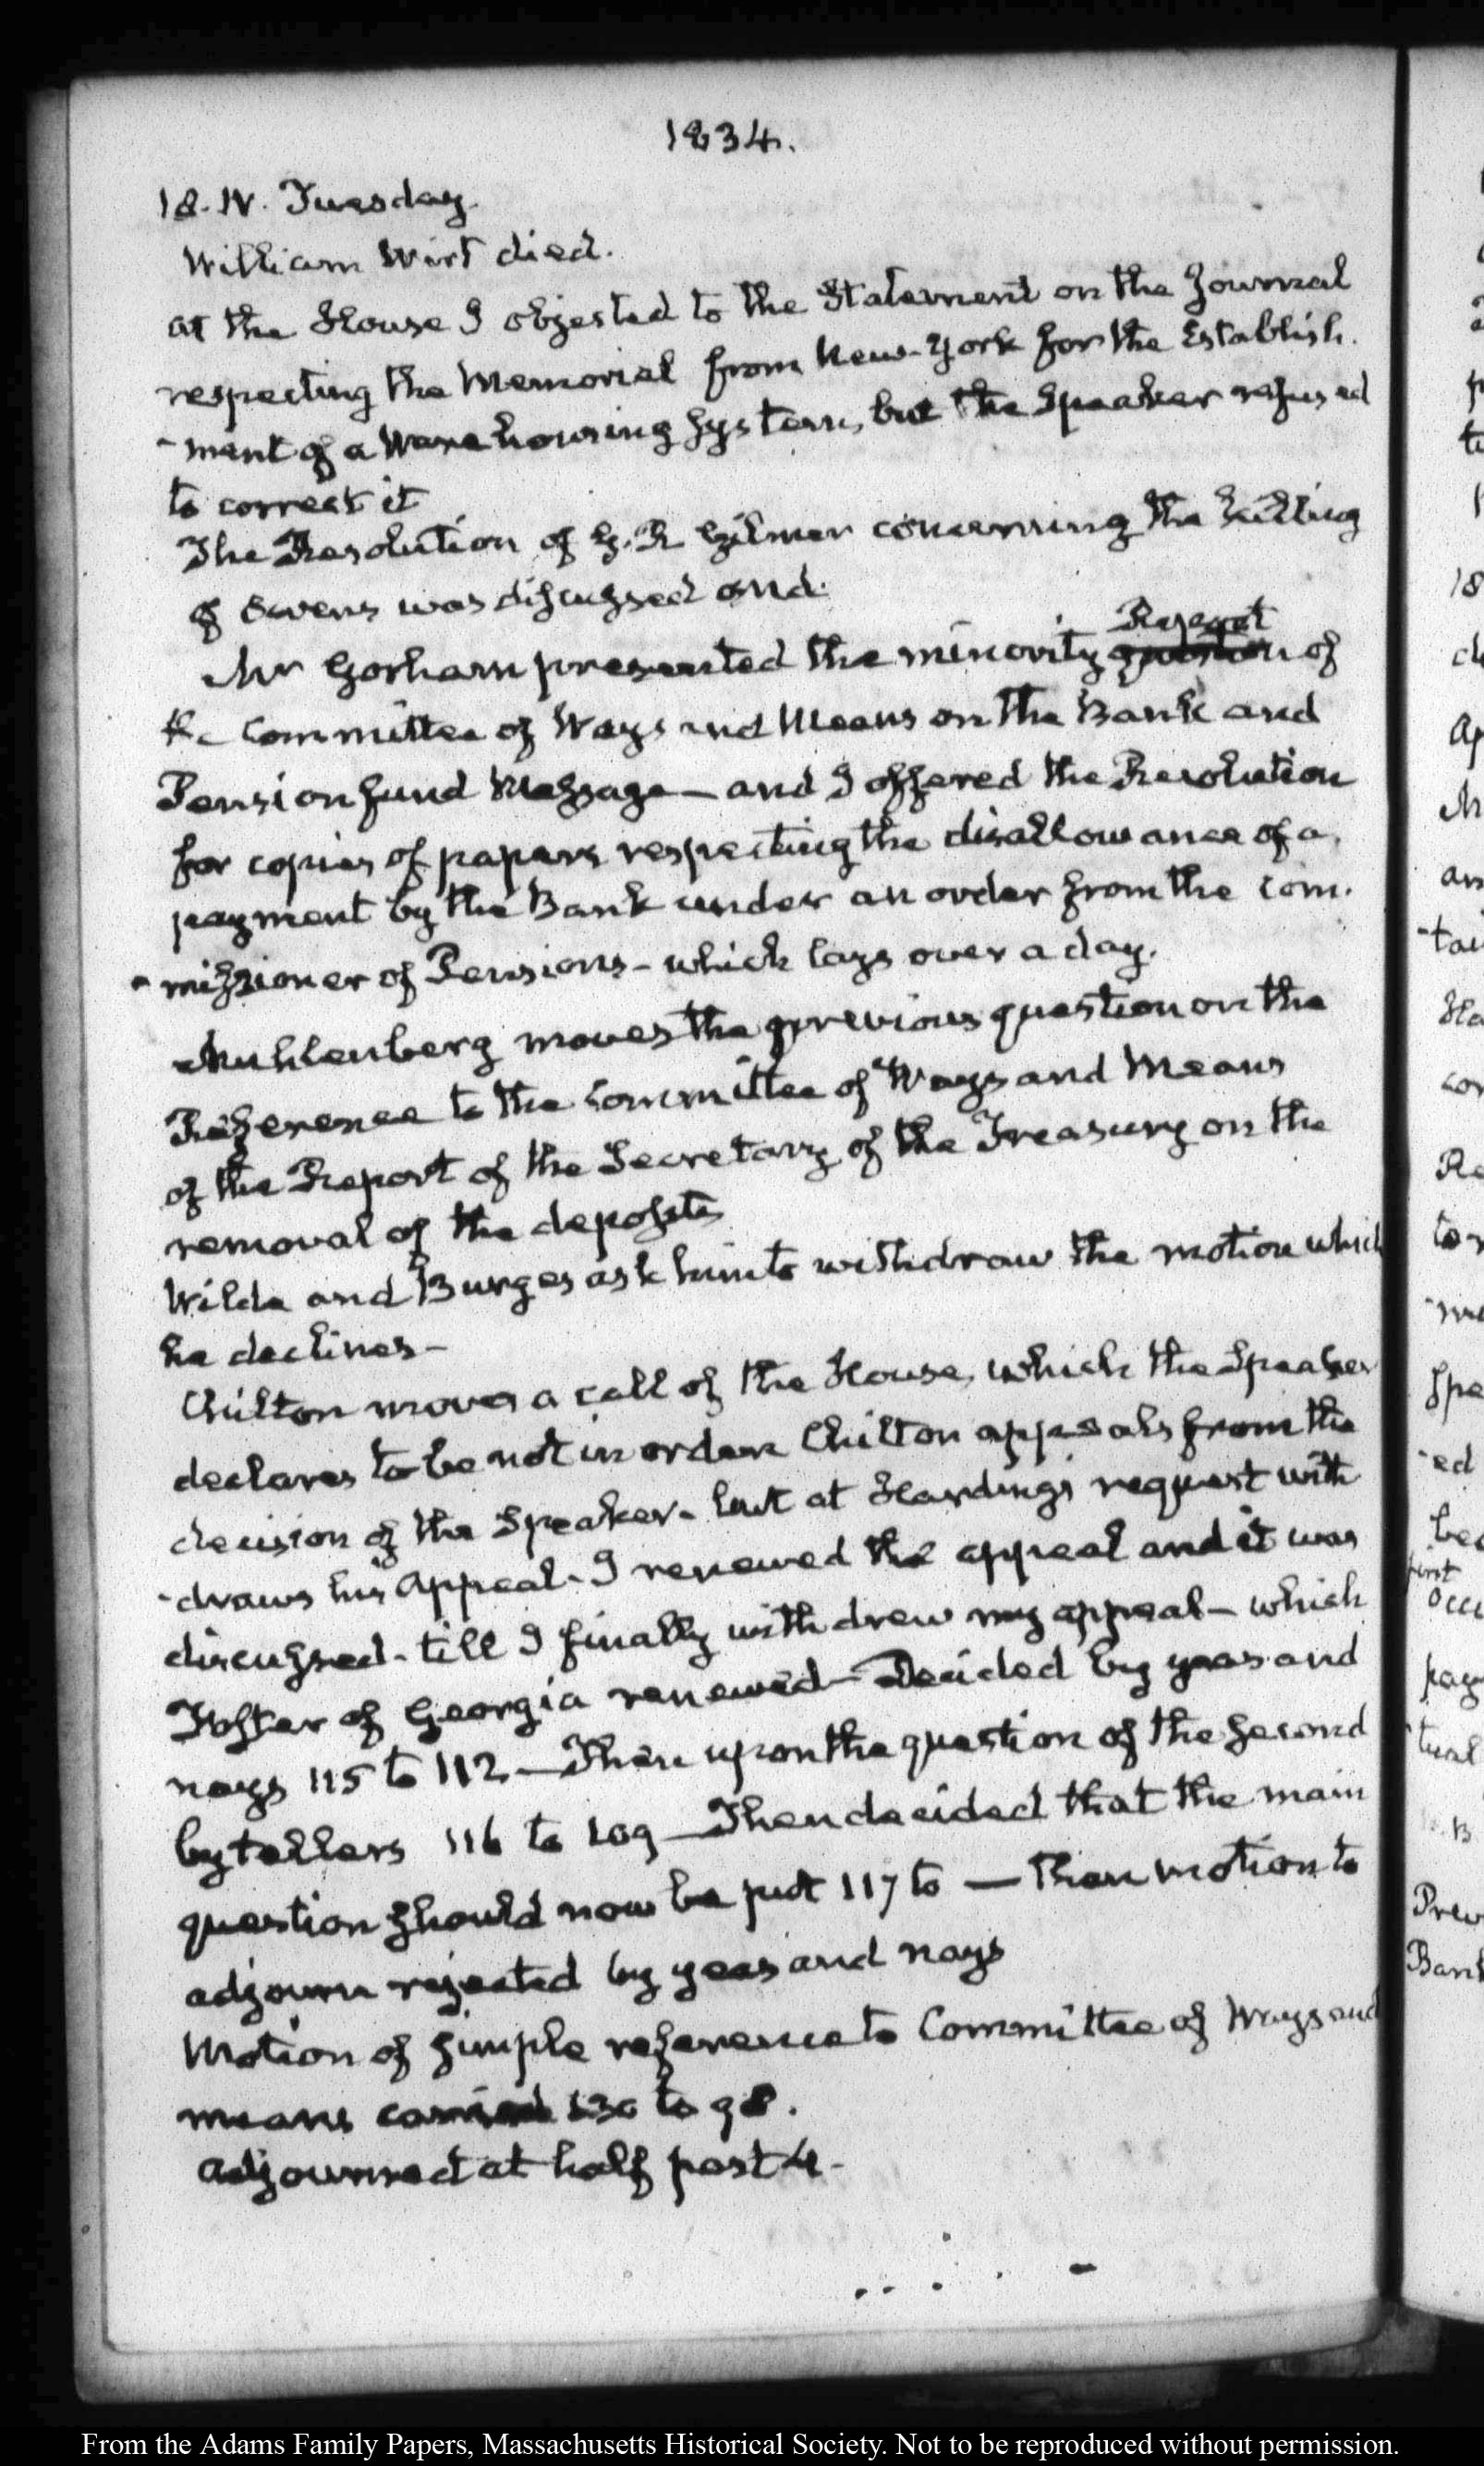 1834.
18. IV. Tuesday.
William Wirt died.
At the House I objected to the Statement on the Journal
respecting the Memorial from New-York for the Establish.
-ment of a Warehousing System, but the Speaker refused
to correct it
The Resolution of G. R Gilmer concerning the killing
of Owens was discussed and.
Mr Gorham presented the minority Report of
Committee of Ways and Means on the Bank and
Pension fund Message — and I offered the Resolution
for copies of papers respecting the disallowance of a
payment by the Bank under an order from the Com.
-missioner of Pensions - which lays over a day.
Muhlenberg moves the previous question on the
Reference to the Committee of Ways and Means
of the Report of the Secretary of the Treasury on the
removal of the deposits
Wilde and Burges ask him to withdraw the motion which
he declines -
Chilton moves a call of the House, which the Speaker
declares to be not in order. Chilton appeals from the
decision of the Speaker - but at Hardings request with
-draws his appeal - I renewed the appeal and it was
discussed - till I finally withdrew my appeal - which
Foster of Georgia renewed - Decided by yeas and
nays 115 to 112 — Then upon the question of the second
by tellers 116 to 109 — Then decided that the main
question should now be put 117 to — then motion to
adjourn rejected by yeas and nays
Motion of simple reference to Committee of Ways and
means carried 130 to 98.
Adjourned at half past 4 -
18
Ap
an
Ha
Re
Spe
-ed
first
occ
pay
Prev
Bank
From the Adams Family Papers, Massachusetts Historical Society. Not to be reproduced without permission.